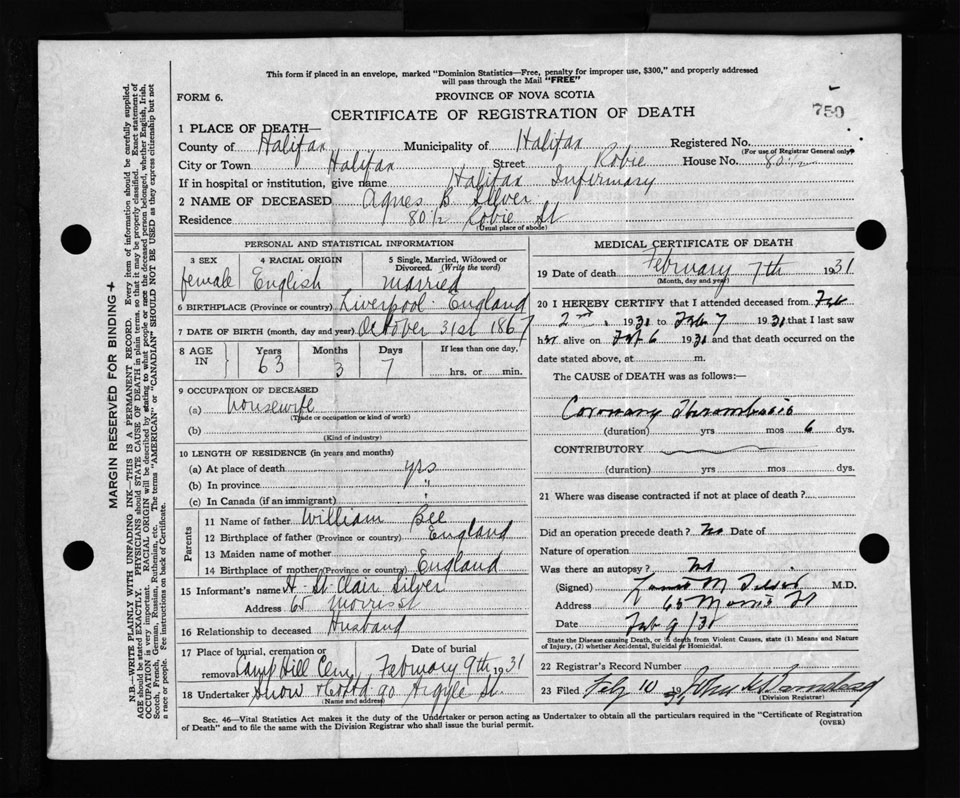 This form if placed in an envelope, marked "Dominion Statistics—Free, penalty for improper use, $300," and properly addressed
will pass through the Mail "FREE"
FORM 6.
PROVINCE OF NOVA SCOTIA
CERTIFICATE OF REGISTRATION OF DEATH
750
1 PLACE OF DEATH—
County of Halifax Municipality of Halifax Registered No.
(For use of Registrar General only)
City or Town Halifax Street Robie House No. 80 1/2
If in hospital or institution, give name Halifax Infirmary
2 NAME OF DECEASED Agnes B. Silver
Residence 80 1/2 Robie St
(Usual place of abode)
PERSONAL AND STATISTICAL INFORMATION
3 SEX 4 RACIAL ORIGIN 5 Single, Married, Widowed or
Divorced. (Write the word)
female English Married
6 BIRTHPLACE (Province or country) Liverpool England
7 DATE OF BIRTH (month, day and year) October 31st 1867
8 AGE IN Years Months Days If less than one day,
63 3 7 hrs. or min.
9 OCCUPATION OF DECEASED
(a) housewife
(Trade or occupation or kind of work)
(b)
(Kind of industry)
10 LENGTH OF RESIDENCE (in years and months)
(a) At place of death yrs
(b) In province "
(c) In Canada (if an immigrant) "
Parents
11 Name of father William Bee
12 Birthplace of father (Province or country) England
13 Maiden name of mother
14 Birthplace of mother (Province or country) England
15 Informant's name H. St Clair Silver
Address 65 Morris St
16 Relationship to deceased Husband
17 Place of burial, cremation or Date of burial
removal Camp Hill Cem February 9th 1931
18 Undertaker Snow & Co Ltd 90 Argyle St.
(Name and address)
MEDICAL CERTIFICATE OF DEATH
19 Date of death February 7th 1931
(Month, day and year)
20 I HEREBY CERTIFY that I attended deceased from Feb
2nd 1931 to Feb 7 1931 that I last saw
her alive on Feb 6 1931 and that death occurred on the
date stated above, at m.
The CAUSE of DEATH was as follows:—
Coronary Thrombosis
(duration) yrs mos 6 dys.
CONTRIBUTORY
(duration) yrs mos dys.
21 Where was disease contracted if not at place of death?
Did an operation precede death? No Date of
Nature of operation
Was there an autopsy? No
(Signed) M.D.
Address 65 Morris St
Date Feb 9/31
State the Disease causing Death, or in death from Violent Causes, state (1) Means and Nature
of Injury, (2) whether Accidental, Suicidal or Homicidal.
22 Registrar's Record Number
23 Filed Feb 10 1931 John
(Division Registrar)
Sec. 46—Vital Statistics Act makes it the duty of the Undertaker or person acting as Undertaker to obtain all the particulars required in the "Certificate of Registration
of Death" and to file the same with the Division Registrar who shall issue the burial permit.
(OVER)
MARGIN RESERVED FOR BINDING
N.B.—WRITE PLAINLY WITH UNFADING INK—THIS IS A PERMANENT RECORD. Every item of information should be carefully supplied.
AGE should be stated EXACTLY. PHYSICIANS should STATE CAUSE OF DEATH in plain terms, so that it may be properly classified. Exact statement of
OCCUPATION is very important. RACIAL ORIGIN will be described by stating to what people or race the deceased person belonged, whether English, Irish,
Scotch, French, German, Russian, Ruthenian, etc. The terms "AMERICAN" or "CANADIAN" SHOULD NOT BE USED as they express citizenship but not
a race or people. See instructions on back of Certificate.